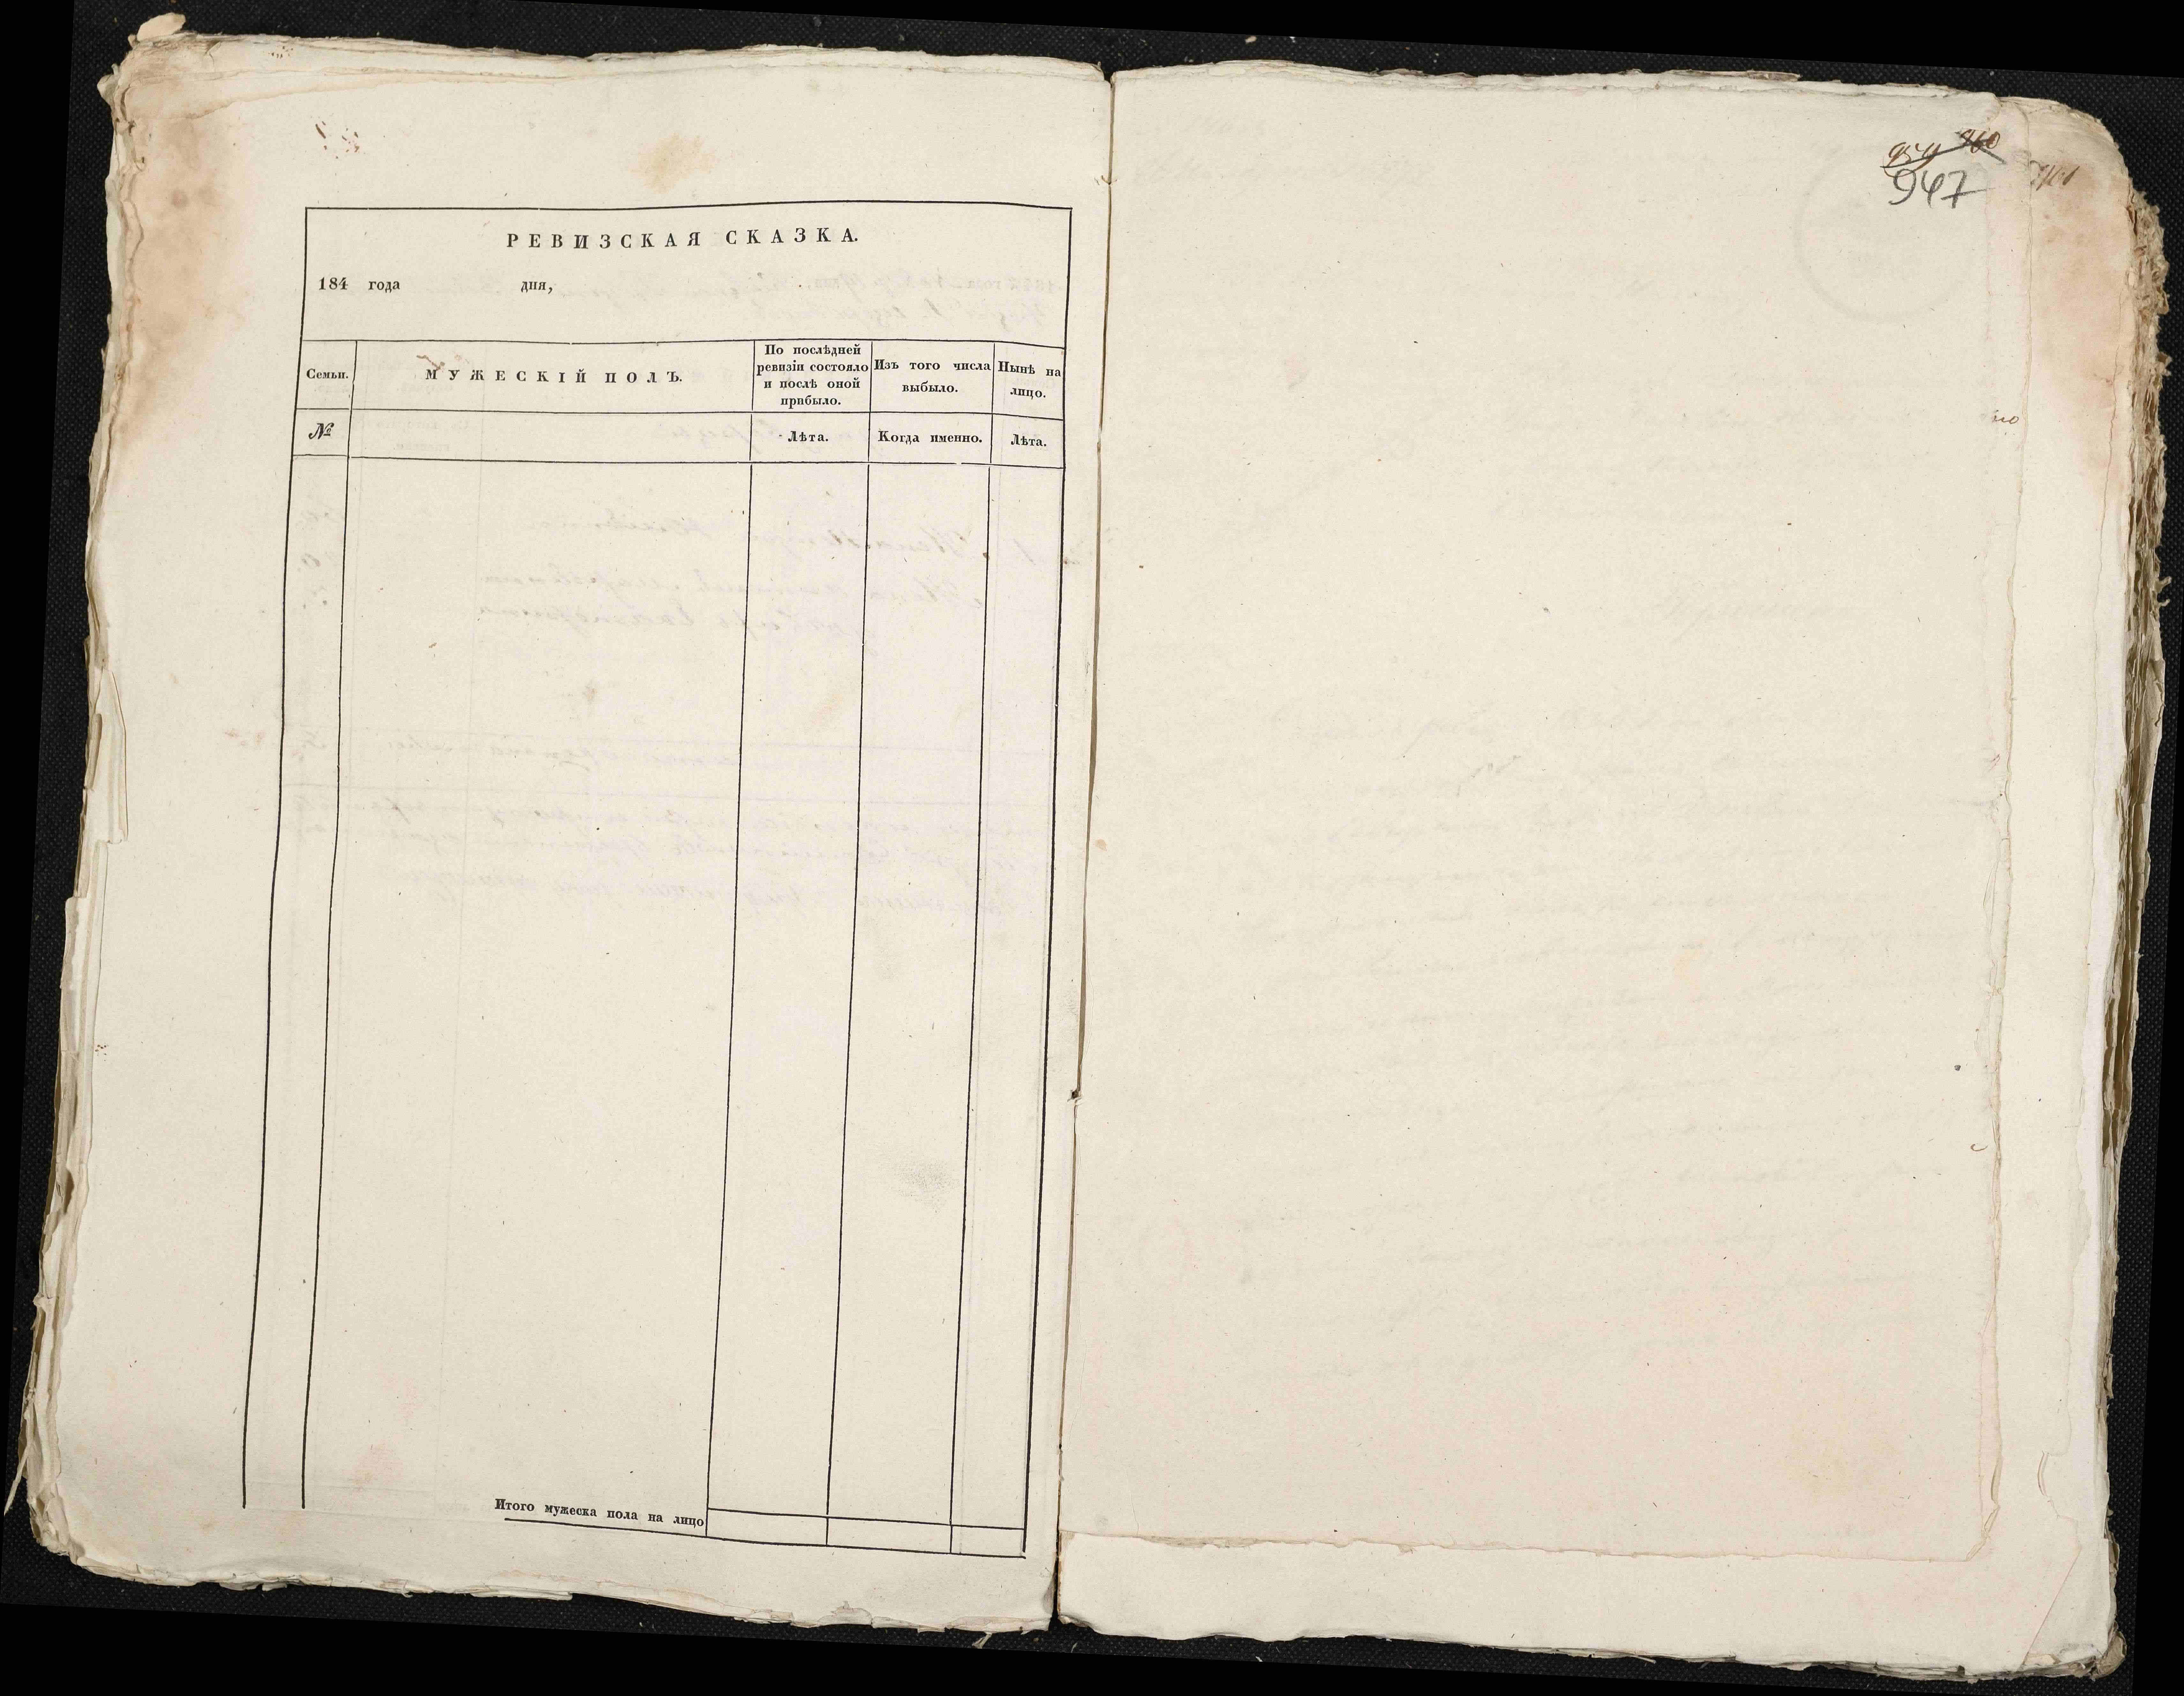 РЕВИЗСКАЯ СКАЗКА.
184 года дня,
Семьи.
МУЖЕСКІЙ ПОЛЪ.
По послѣдней
ревизіи состояло
и послѣ оной
прибыло.
Изъ того числа
выбыло.
Нынѣ на
лицо.
№
Лѣта.
Когда именно.
Лѣта.
Итого мужеска пола на лицо
959 960
947